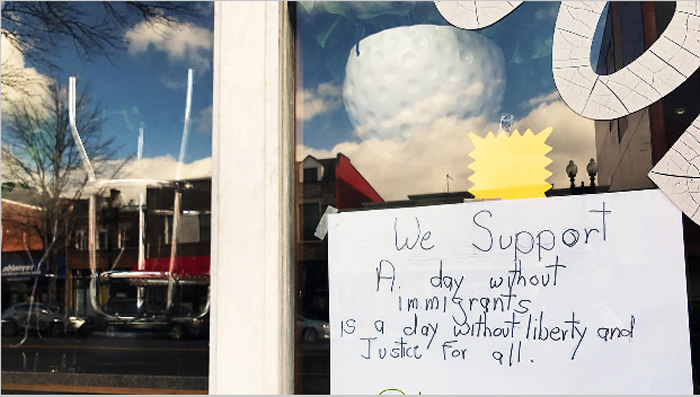 We Support
A. day without
immigrants
is a day without liberty and
Justice For all.